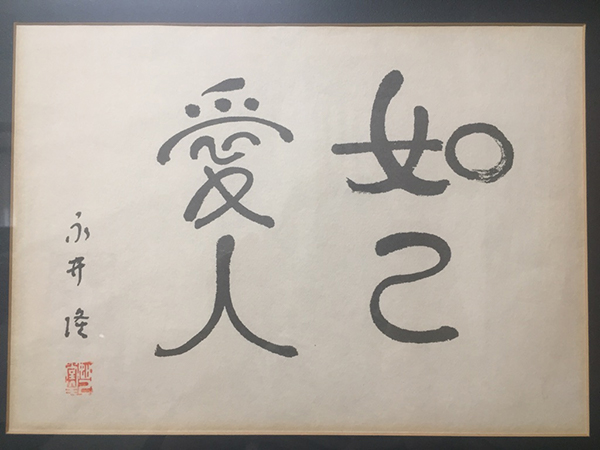 如己
愛人
永井隆